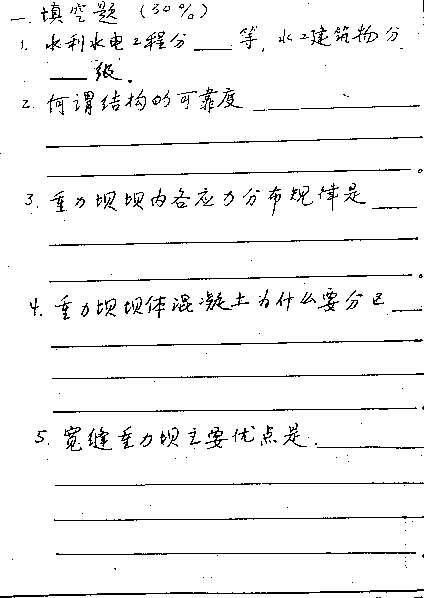 一. 填空题 (30%)
1. 水利水电工程分____等, 水工建筑物分
____级.
2. 何谓结构的可靠度____
3. 重力坝坝内各应力分布规律是____
4. 重力坝坝体混凝土为什么要分区____
5. 宽缝重力坝主要优点是____